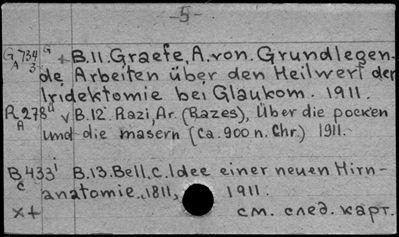 -5-
G 734 G + B.11. Graefe, A. von. Grundlegen-
A 3 de Arbeiten über den Heilwert der
Iridektomie bei Glaukom. 1911.
R 278 u v B.12. Razi, Ar. (Razes), Über die pocken
A und die masern (ca. 900 n. Chr.) 1911.
B 433 i B.13. Bell, C. Idee einer neuen Hirn-
C anatomie., 1811, 1911.
x+ см. след. карт.